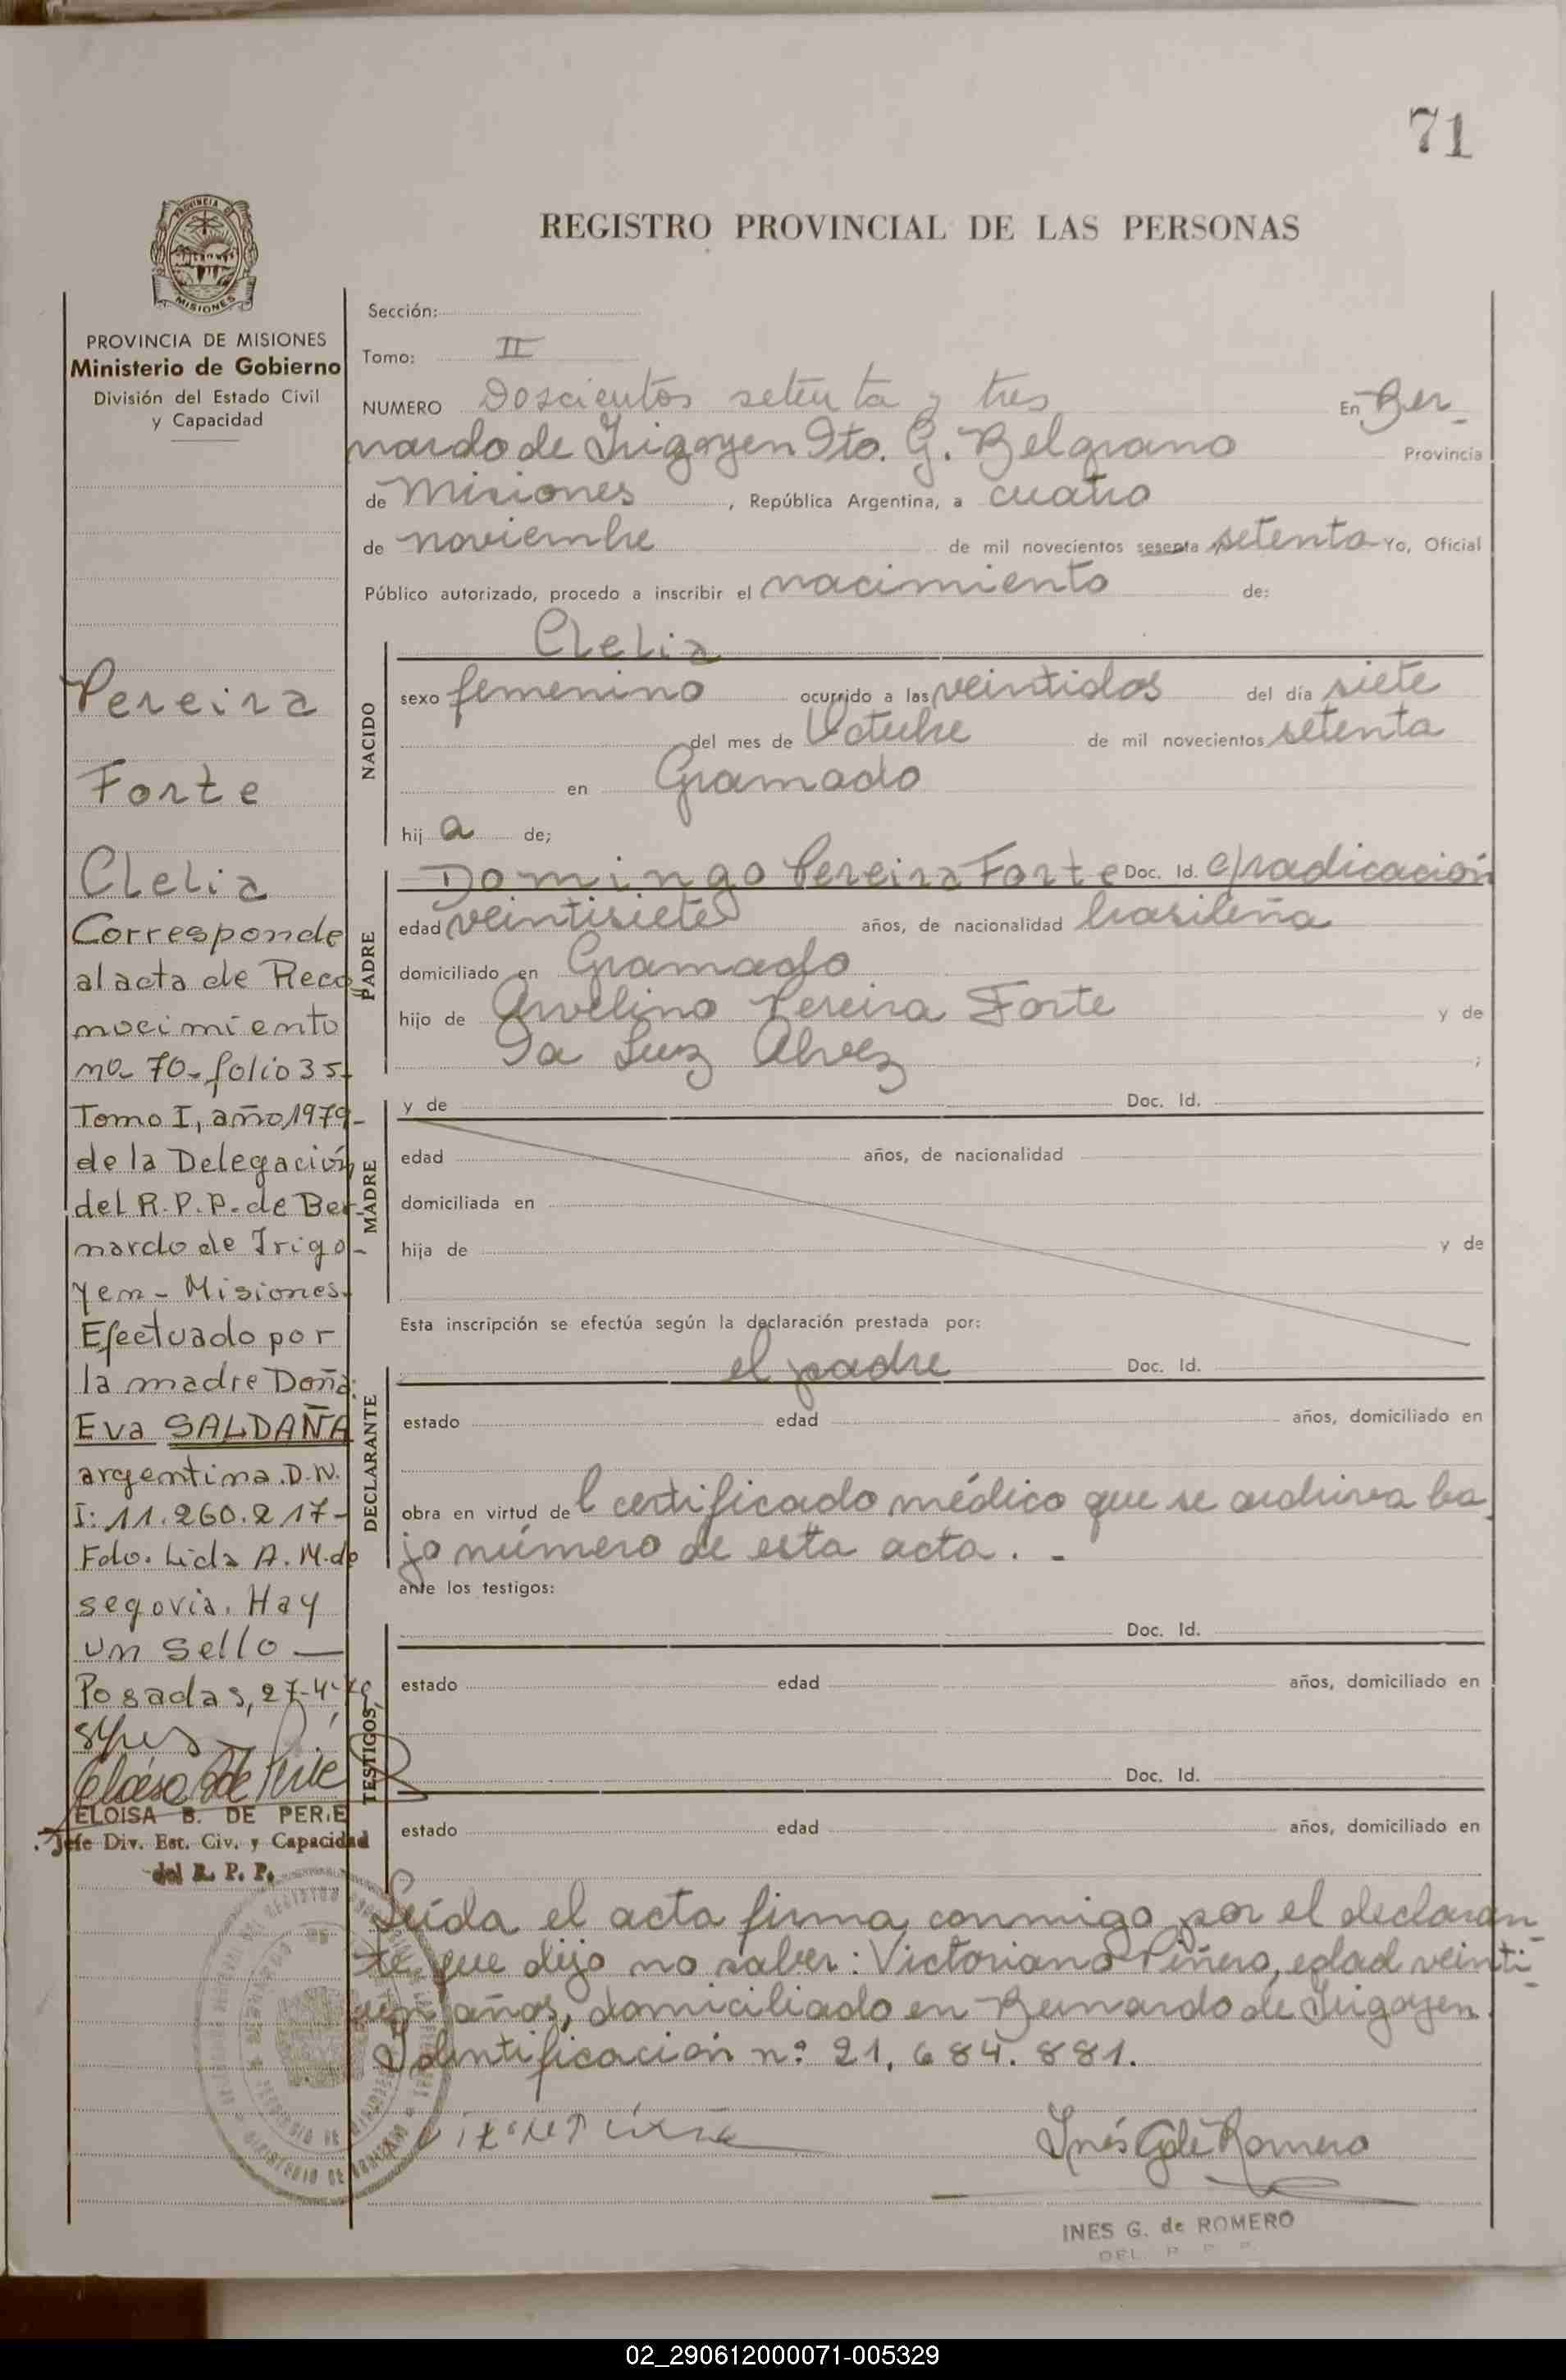 71
PROVINCIA DE
MISIONES
REGISTRO PROVINCIAL DE LAS PERSONAS
PROVINCIA DE MISIONES
Ministerio de Gobierno
División del Estado Civil
y Capacidad
Pereira
Forte
Clelia
Corresponde
al acta de Reco
nocimiento
no- 70- folio 35-
Tomo I, año 1979-
de la Delegación
del R.P.P. de Ber-
nardo de Irigo-
yen - Misiones.
Efectuado por
la madre Doña:
Eva SALDAÑA
argentina. D.N.
I: 11.260.217-
Fdo. Lida A. M. de
segovia. Hay
un sello —
Posadas, 27-4-79
ELOISA B. DE PERIE
Jefe Div. Est. Civ. y Capacidad
del R. P. P.
Sección:
Tomo: II
NUMERO Doscientos setenta y tres En Ber-
nardo de Irigoyen Dto. G. Belgrano Provincia
de Misiones, República Argentina, a cuatro
de noviembre de mil novecientos sesenta setenta Yo, Oficial
Público autorizado, procedo a inscribir el nacimiento de:
NACIDO
Clelia
sexo femenino ocurrido a las veintidos del día siete
del mes de Octubre de mil novecientos setenta
en Gramado
hij a de;
PADRE
Domingo Pereira Forte Doc. Id. c/radicación
edad veintisiete años, de nacionalidad brasileña
domiciliado en Gramado
hijo de Avelino Pereira Forte y de
Da Luz Alvez ;
MADRE
y de Doc. Id.
edad años, de nacionalidad
domiciliada en
hija de y de
Esta inscripción se efectúa según la declaración prestada por:
DECLARANTE
el padre Doc. Id.
estado edad años, domiciliado en
obra en virtud de l certificado médico que se archiva ba
jo número de esta acta. -
ante los testigos:
TESTIGOS
Doc. Id.
estado edad años, domiciliado en
Doc. Id.
estado edad años, domiciliado en
Leída el acta firma conmigo por el declaran-
te que dijo no saber: Victoriano Piñero, edad veinti-
años, domiciliado en Bernardo de Irigoyen.
Identificación n: 21.684.881.
Inés G de Romero
INES G. de ROMERO
DEL. R P P
02_290612000071-005329